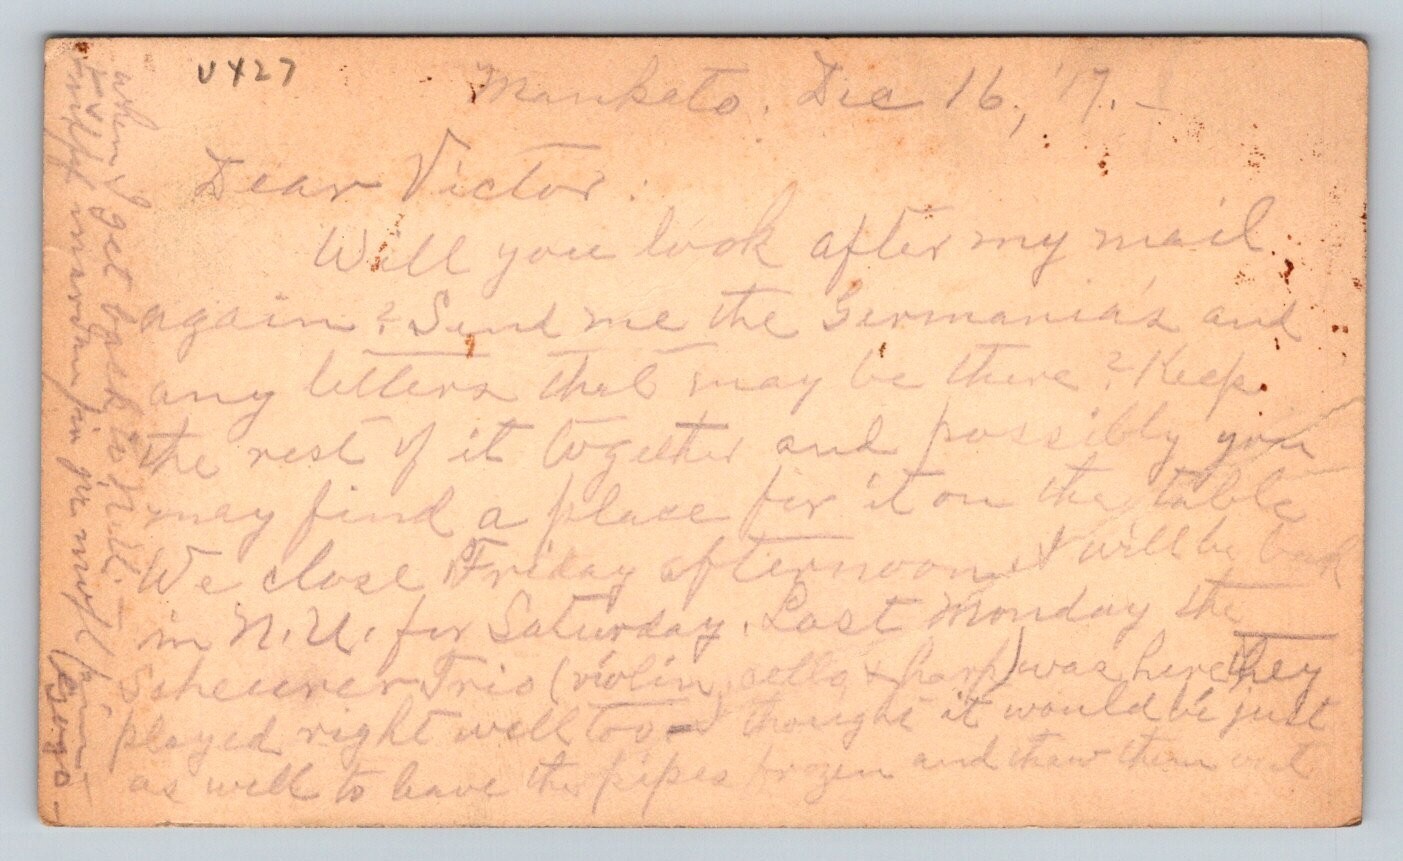 UX27
Mankato. Dec 16, '17. -
Dear Victor:
Will you look after my mail
again? Send me the Germania's and
any letters that may be there? Keep
the rest of it together and possibly you
may find a place for it on the table
We close Friday afternoon & will be back
in N.U. for Saturday. Last Monday the
Scheurer Trio (violin, cello & harp) was here they
played right well too - thought it would be just
as well to leave the pipes frozen and thaw them out
when I get back to N.U.